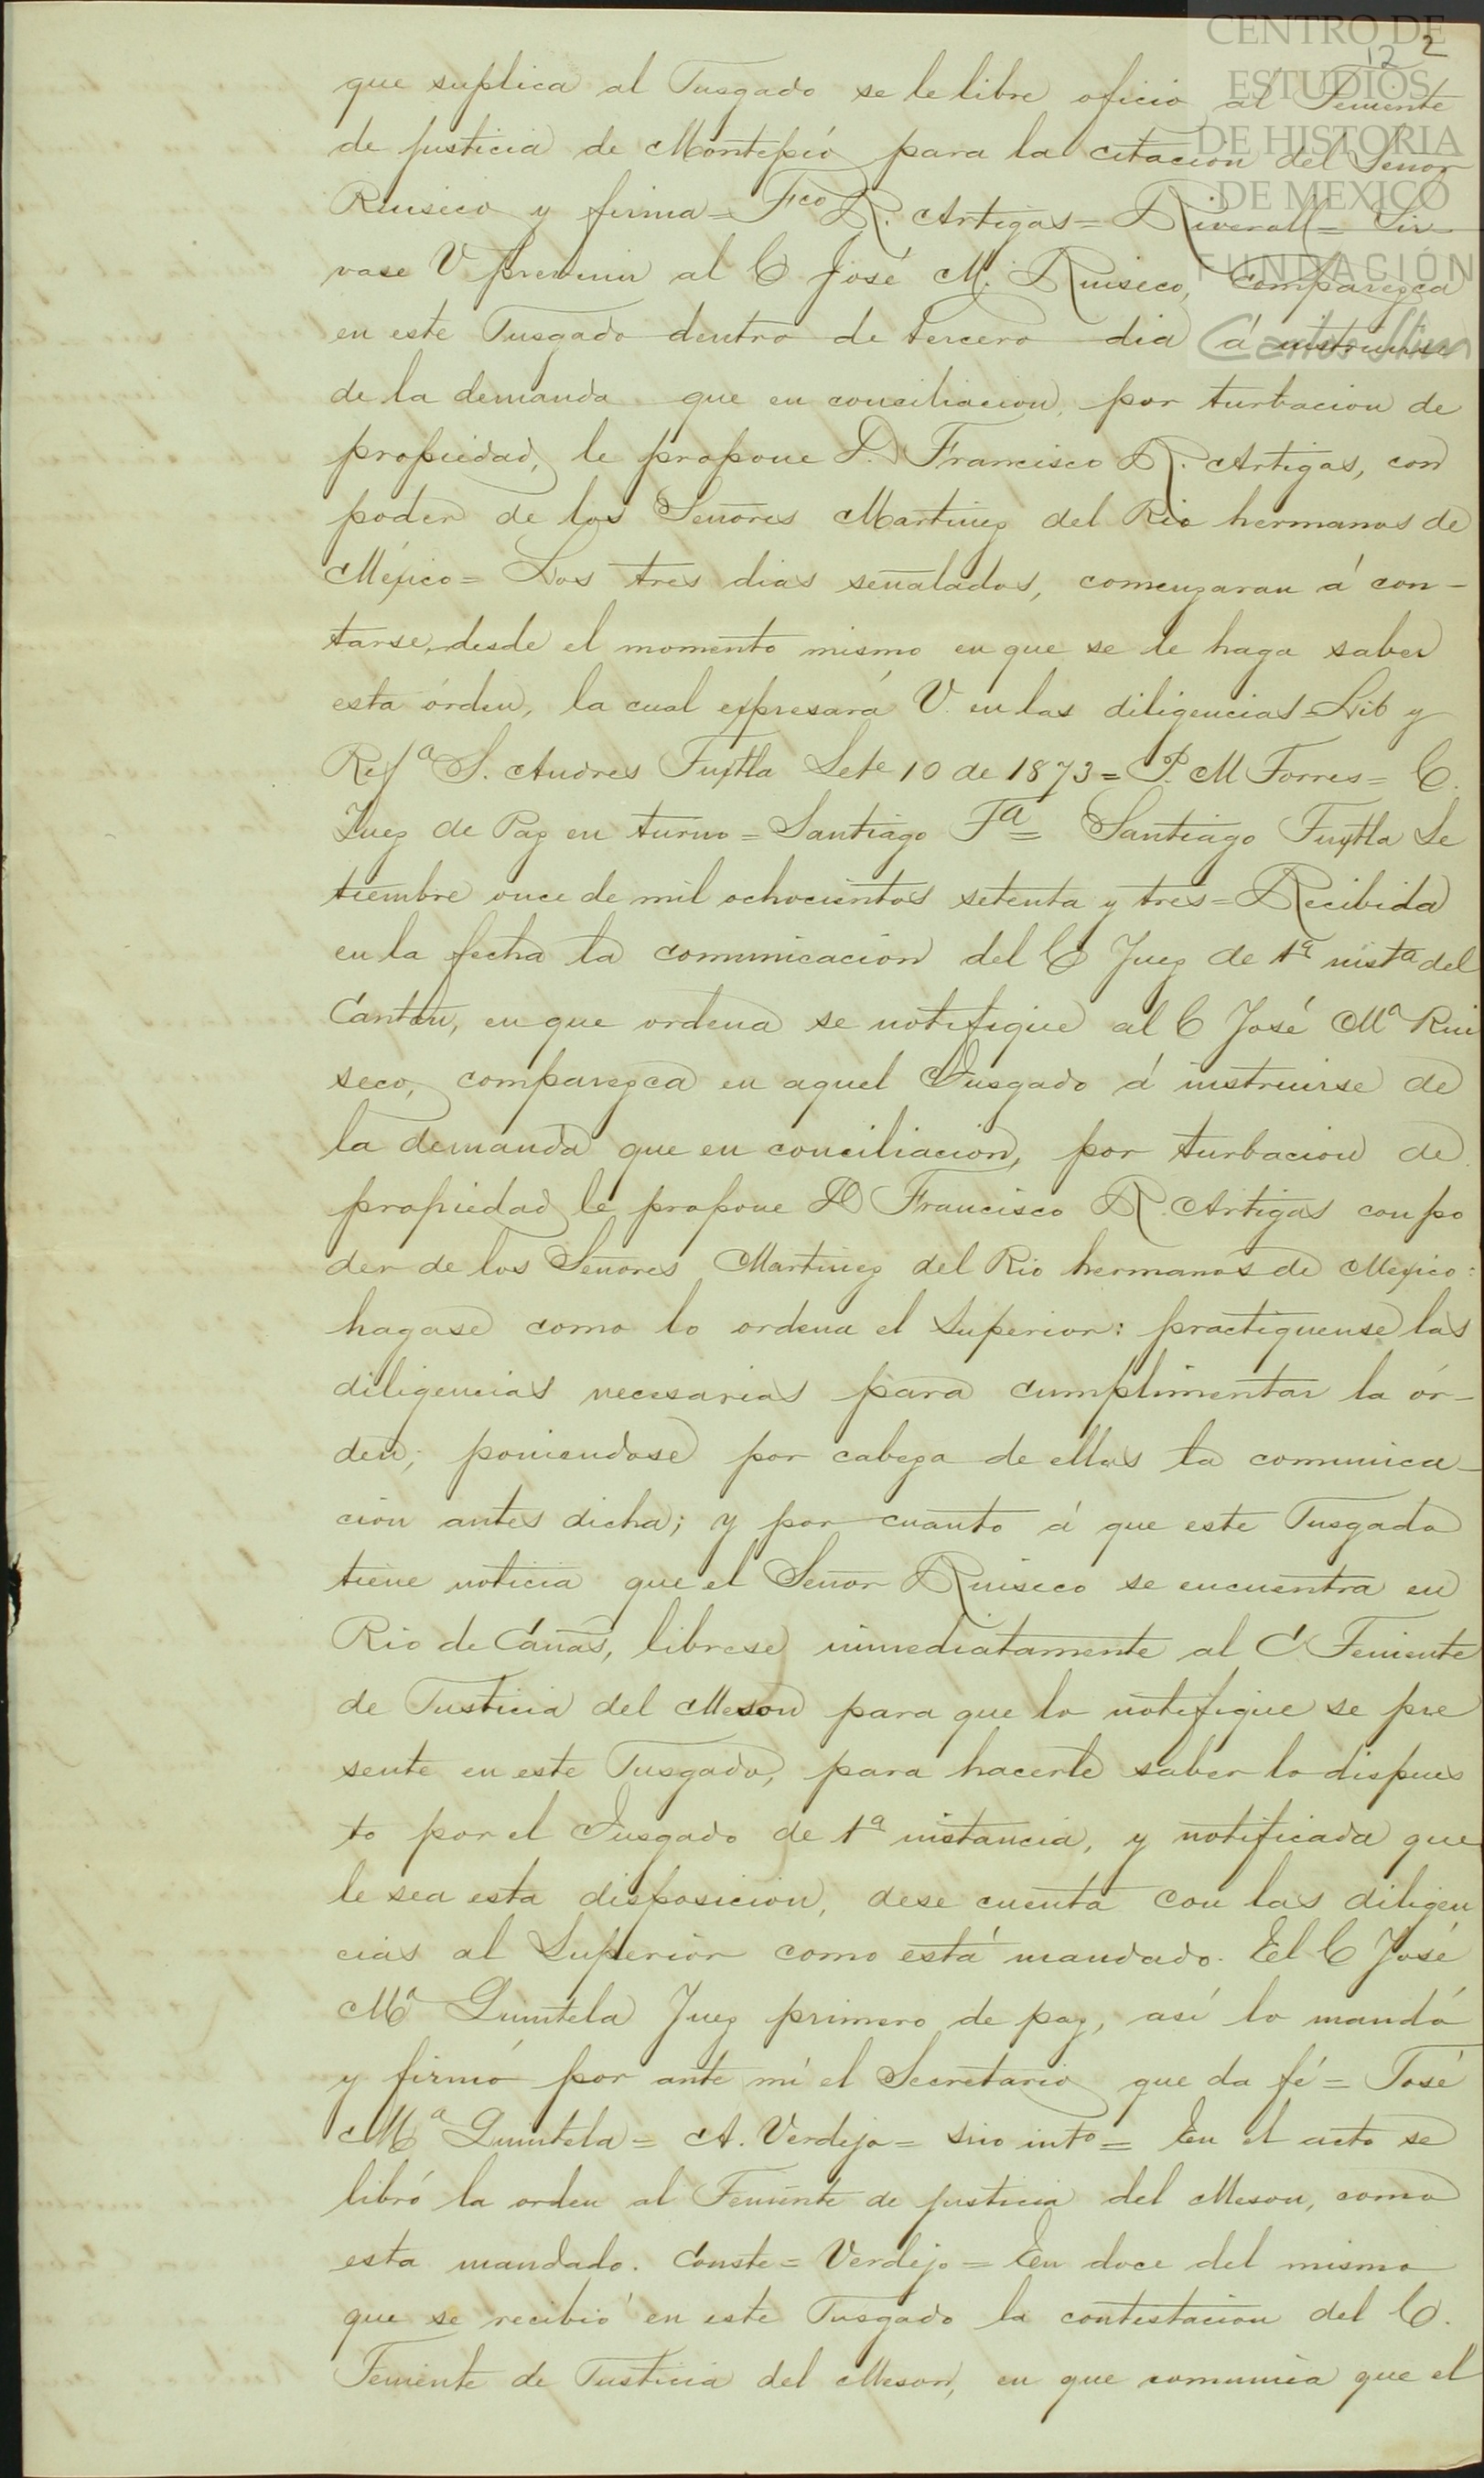 CENTRO DE
ESTUDIOS
DE HISTORIA
DE MEXICO
FUNDACIÓN
Carlos Slim
12 2
que suplica al Jusgado se le libre oficio al Teniente
de justicia de Montepío para la citacion del Señor
Ruiseco y firma = Fco R. Artigas = Riveroll = Sir-
vase V prevenir al C José M. Ruiseco, comparezca
en este Jusgado dentro de tercero dia á instruirse
de la demanda que en conciliacion, por turbacion de
propiedad, le propone D. Francisco R. Artigas, con
poder de los Señores Martinez del Rio hermanos de
México = Los tres dias señalados, comenzaran á con-
tarse, desde el momento mismo en que se le haga saber
esta órden, la cual expresará V. en las diligencias = Lib y
Refª S. Andres Tuxtla Sete 10 de 1873 = P. M Torres = C.
Juez de Paz en turno = Santiago Tª = Santiago Tuxtla Se
tiembre once de mil ochocientos setenta y tres = Recibida
en la fecha la comunicacion del C Juez de 1ª instª del
Canton, en que ordena se notifique al C José Mª Rui
seco, comparezca en aquel Jusgado á instruirse de
la demanda que en conciliacion, por turbacion de
propiedad le propone D Francisco R. Artigas con po
der de los Señores Martinez del Rio hermanos de Mexico:
hagase como lo ordena el Superior: practiquense las
diligencias necesarias para cumplimentar la ór-
den; poniendose por cabeza de ellas la comunica-
cion antes dicha; y por cuanto á que este Jusgado
tiene noticia que el Señor Ruiseco se encuentra en
Rio de Cañas, librese inmediatamente al C. Teniente
de Justicia del Meson para que lo notifique se pre
sente en este Jusgado, para hacerle saber lo dispues
to por el Jusgado de 1ª instancia, y notificada que
le sea esta disposicion, dese cuenta con las diligen
cias al Superior como está mandado. El C José
Mª Quintela Juez primero de paz, así lo mandó
y firmó por ante mí el Secretario que da fé = José
Mª Quintela = A. Verdejo = srio into = En el acto se
libró la orden al Teniente de justicia del Meson, como
esta mandado. Conste = Verdejo = En doce del mismo
que se recibió en este Jusgado la contestacion del C.
Teniente de Justicia del Meson, en que comunica que el